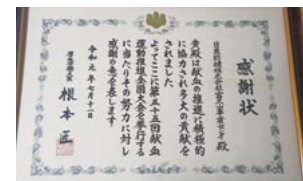 感謝状
株式会社富山事業所 殿
貴殿は献血の推進に積極的
に協力され多大の貢献を
されました
よってここに第五十五回献血
運動推進全国大会を挙行する
に当たりその努力に対し
感謝の意を表します
令和元年七月十一日
厚生労働大臣 根本匠